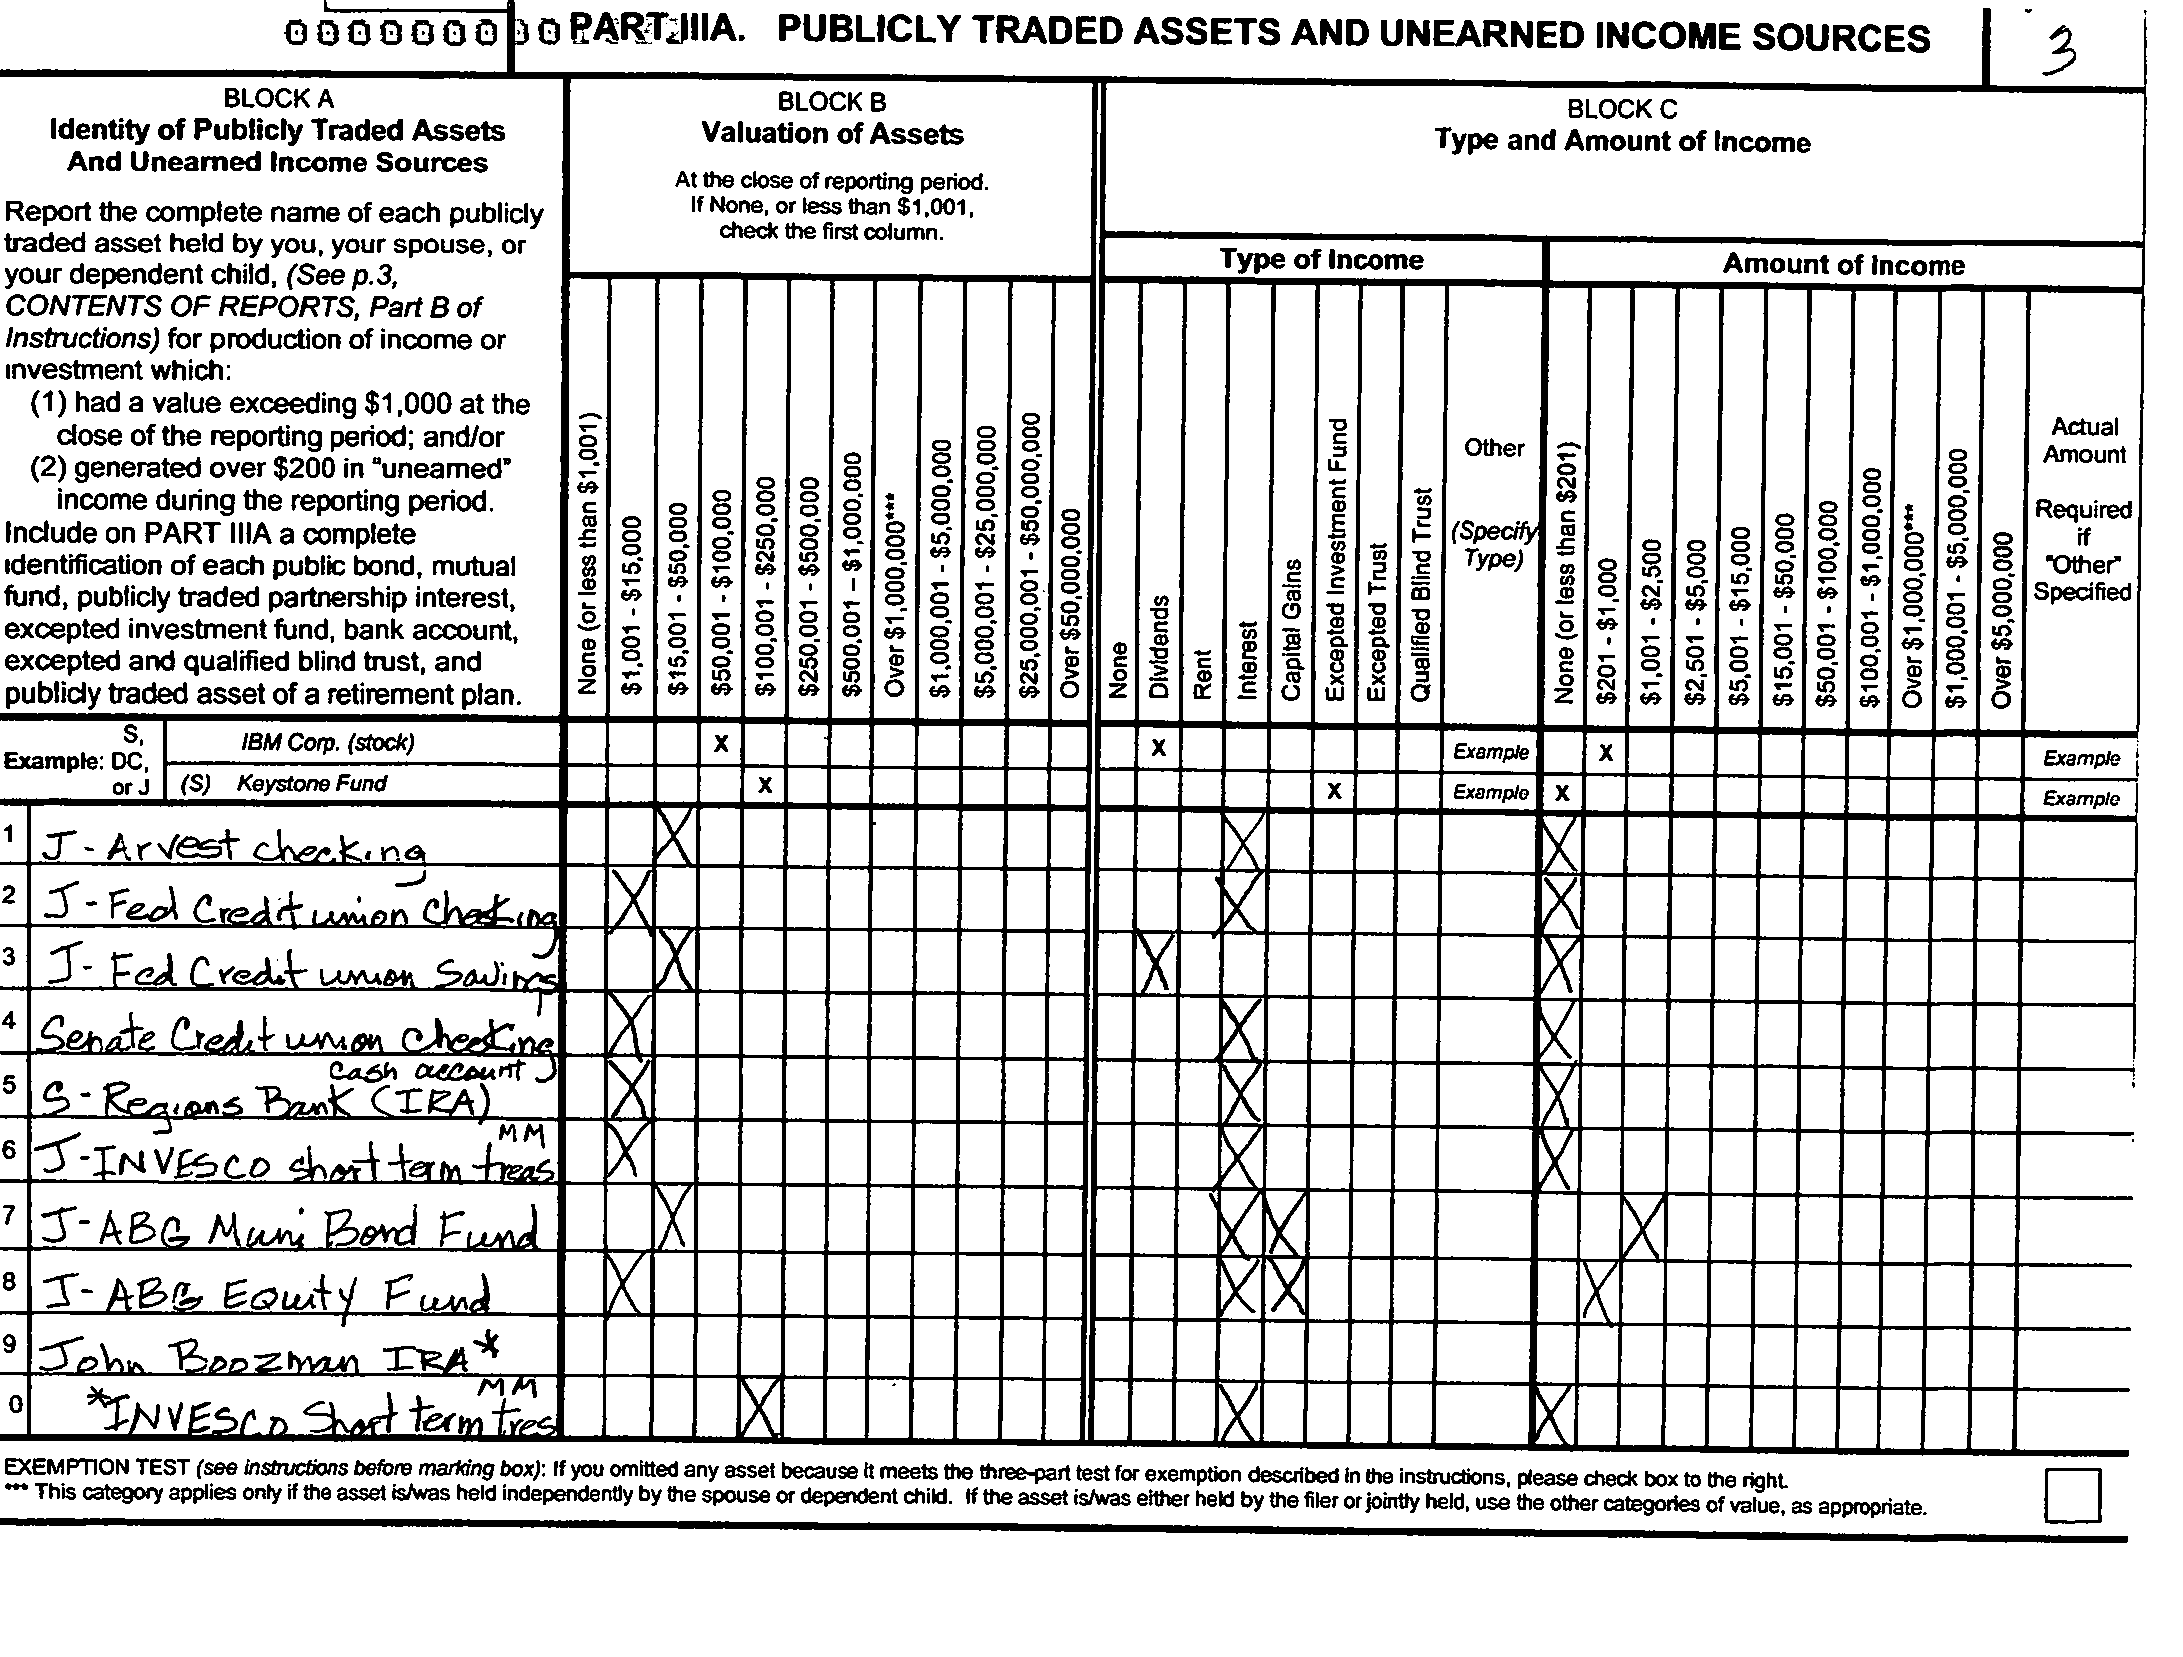 000000000 PART IIIA. PUBLICLY TRADED ASSETS AND UNEARNED INCOME SOURCES 3
BLOCK A
Identity of Publicly Traded Assets
And Unearned Income Sources
Report the complete name of each publicly
traded asset held by you, your spouse, or
your dependent child, (See p.3,
CONTENTS OF REPORTS, Part B of
Instructions) for production of income or
investment which:
(1) had a value exceeding $1,000 at the
close of the reporting period; and/or
(2) generated over $200 in "unearned"
income during the reporting period.
Include on PART IIIA a complete
identification of each public bond, mutual
fund, publicly traded partnership interest,
excepted investment fund, bank account,
excepted and qualified blind trust, and
publicly traded asset of a retirement plan.
BLOCK B
Valuation of Assets
At the close of reporting period.
If None, or less than $1,001,
check the first column.
None (or less than $1,001)
$1,001 - $15,000
$15,001 - $50,000
$50,001 - $100,000
$100,001 - $250,000
$250,001 - $500,000
$500,001 – $1,000,000
Over $1,000,000***
$1,000,001 - $5,000,000
$5,000,001 - $25,000,000
$25,000,001 - $50,000,000
Over $50,000,000
BLOCK C
Type and Amount of Income
Type of Income
None
Dividends
Rent
Interest
Capital Gains
Excepted Investment Fund
Excepted Trust
Qualified Blind Trust
Other
(Specify
Type)
Amount of Income
None (or less than $201)
$201 - $1,000
$1,001 - $2,500
$2,501 - $5,000
$5,001 - $15,000
$15,001 - $50,000
$50,001 - $100,000
$100,001 - $1,000,000
Over $1,000,000***
$1,000,001 - $5,000,000
Over $5,000,000
Actual
Amount
Required
if
"Other"
Specified
Example: S, DC, or J
IBM Corp. (stock) X X Example X Example
(S) Keystone Fund X X Example X Example
1 J - Arvest checking X X X
2 J - Fed Credit union Checking X X X
3 J - Fed Credit union Savings X X X
4 Senate Credit union Checking X X X
cash account
5 S - Regions Bank (IRA) X X X
MM
6 J - INVESCO short term treas X X X
7 J - ABG Muni Bond Fund X X X X
8 J - ABG Equity Fund X X X X
9 John Boozman IRA*
MM
0 *INVESCO Short term tres X X X
EXEMPTION TEST (see instructions before marking box): If you omitted any asset because it meets the three-part test for exemption described in the instructions, please check box to the right.
*** This category applies only if the asset is/was held independently by the spouse or dependent child. If the asset is/was either held by the filer or jointly held, use the other categories of value, as appropriate.